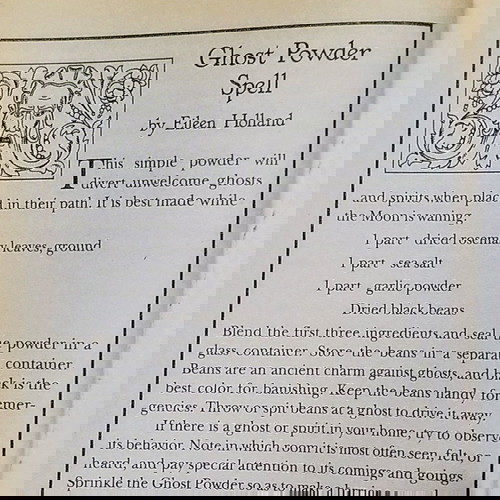 Ghost Powder
Spell
by Eileen Holland
This simple powder will
divert unwelcome ghosts
and spirits when placed in their path. It is best made while
the Moon is waning.
1 part dried rosemary leaves, ground
1 part sea salt
1 part garlic powder
Dried black beans
Blend the first three ingredients and seal the powder in a
glass container. Store the beans in a separate container.
Beans are an ancient charm against ghosts, and black is the
best color for banishing. Keep the beans handy for emer-
gencies. Throw or spit beans at a ghost to drive it away.
If there is a ghost or spirit in your home, try to observe
its behavior. Note in which room it is most often seen, felt or
heard, and pay special attention to its comings and goings.
Sprinkle the Ghost Powder so as to make a barrier